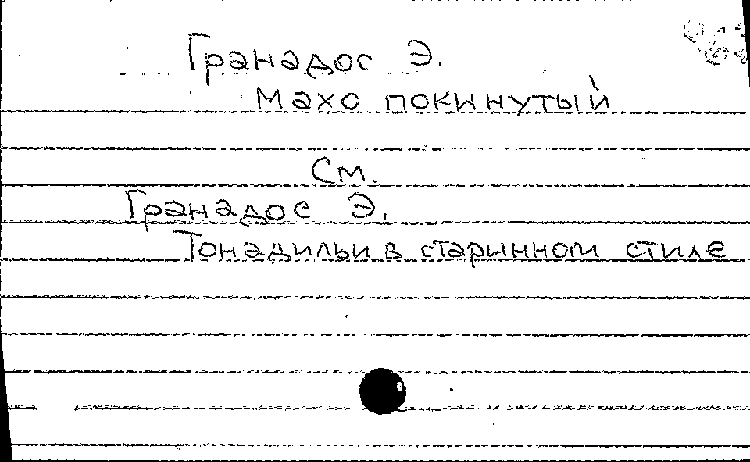 Гранадос Э.
Махо покинутый
См.
Гранадос Э.
Тонадильи в старинном стиле